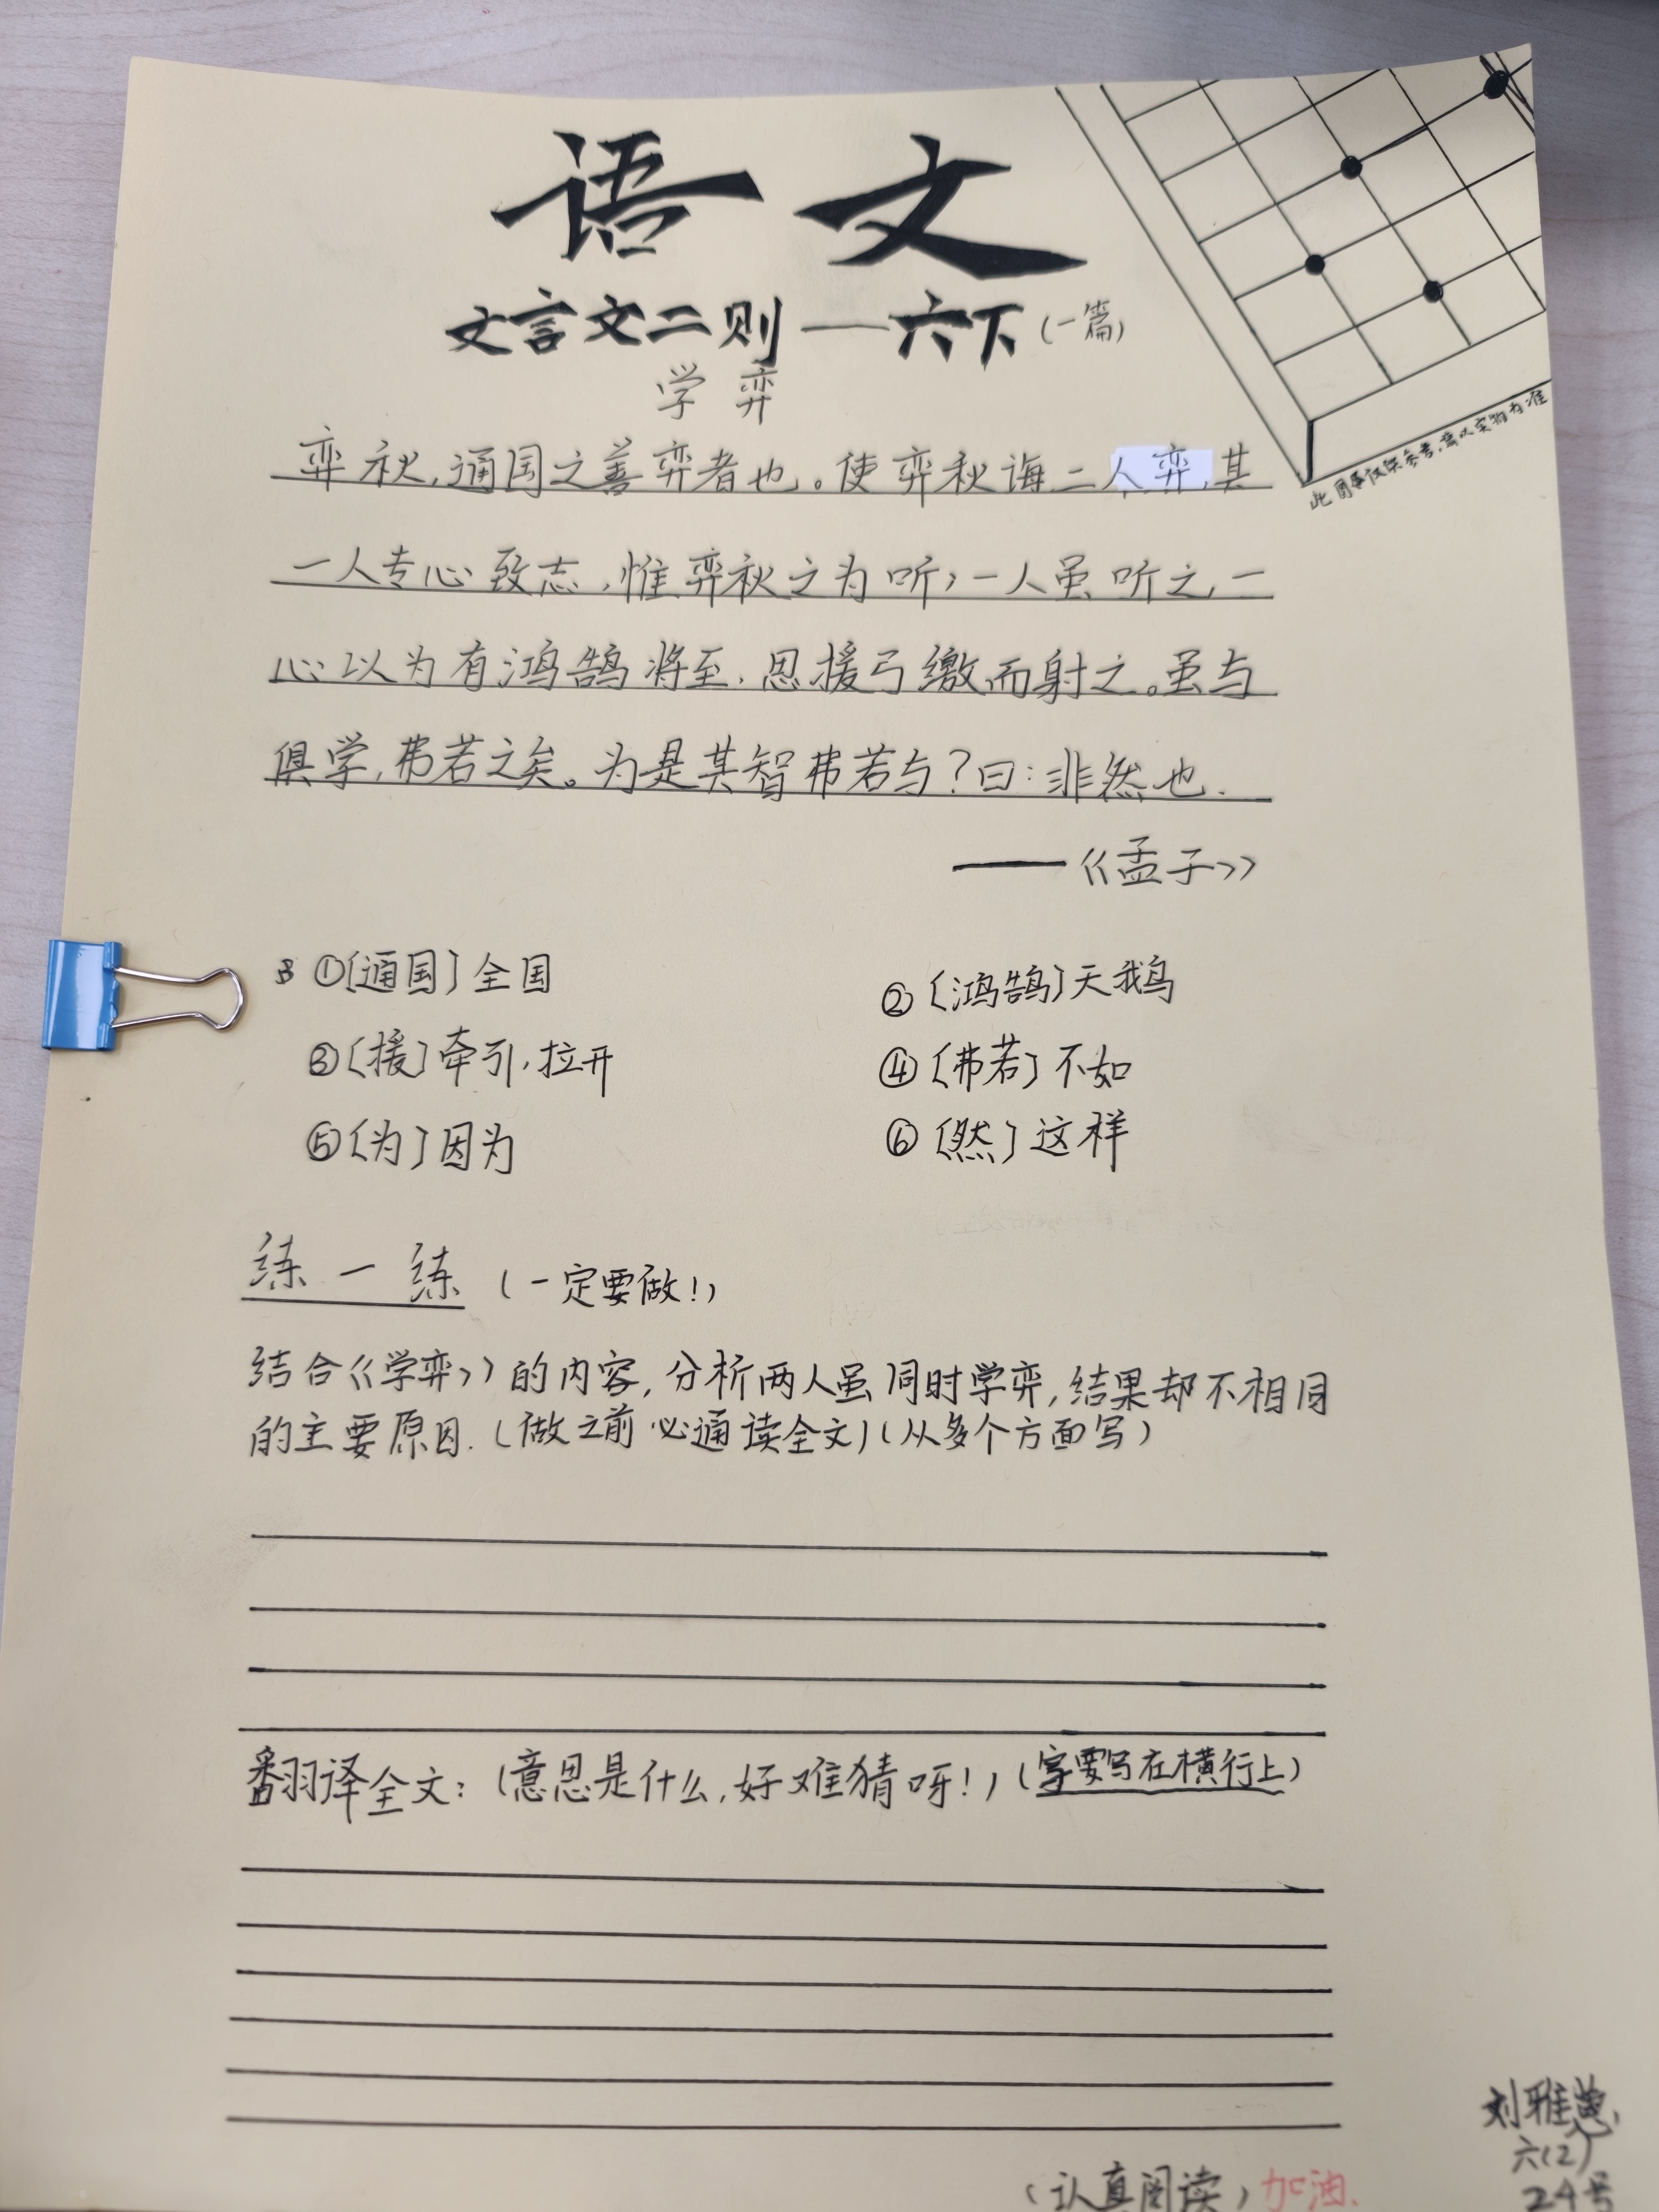 语文
文言文二则——六下(一篇)
学弈
弈秋,通国之善弈者也。使弈秋诲二人弈,其
一人专心致志,惟弈秋之为听,一人虽听之,一
心以为有鸿鹄将至.思援弓缴而射之。虽与
俱学,弗若之矣。为是其智弗若与?曰:非然也.
——《孟子》
此图案仅供参考,请以实物为准
①〔通国〕全国
②〔鸿鹄〕天鹅
③〔援〕牵引,拉开
④〔弗若〕不如
⑤〔为〕因为
⑥〔然〕这样
练一练(一定要做!)
结合《学弈》的内容,分析两人虽同时学弈,结果却不相同
的主要原因.(做之前必通读全文)(从多个方面写)
翻译全文:(意思是什么,好难猜呀!)(字要写在横行上)
刘雅慧
六(2)
24号
(认真阅读)加油.